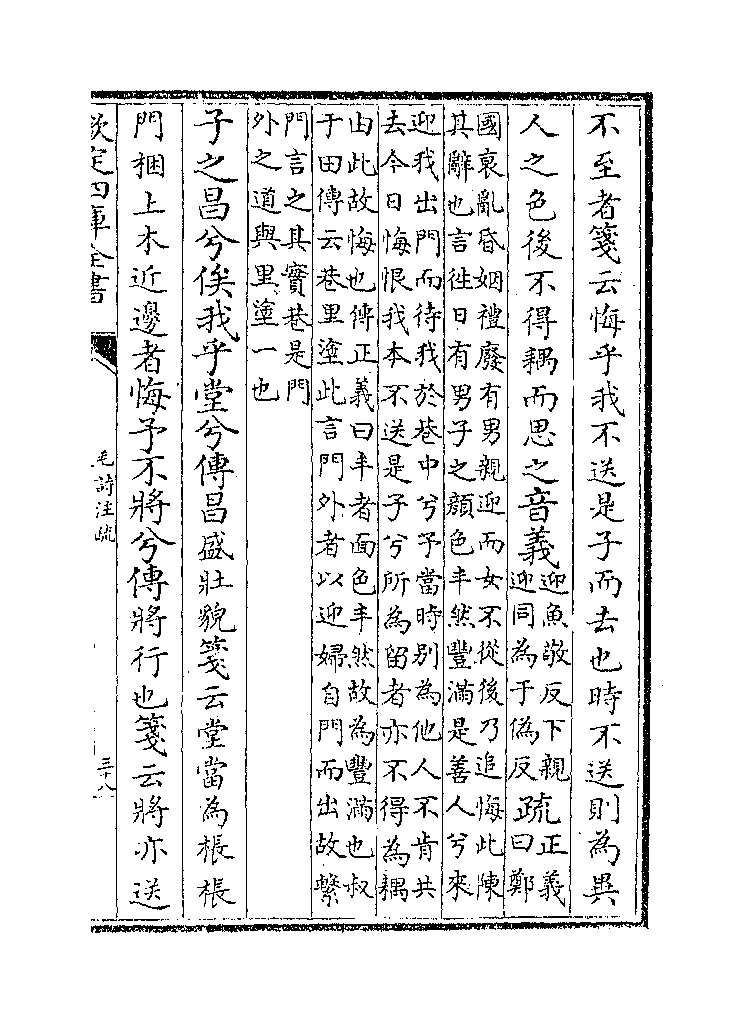 不至者箋云悔乎我不送是子而去也時不送則為異
人之色後不得耦而思之音義迎魚敬反下親
迎同為于偽反疏正義
曰鄭
國衰亂昏姻禮廢有男親迎而女不從後乃追悔此陳
其辭也言徃日有男子之顔色丰然豐滿是善人兮來
迎我出門而待我於巷中兮予當時别為他人不肯共
去今日悔恨我本不送是子兮所為留者亦不得為耦
由此故悔也傳正義曰丰者面色丰然故為豐滿也叔
于田傳云巷里塗此言門外者以迎婦自門而出故繫
門言之其實巷是門
外之道與里塗一也
子之昌兮俟我乎堂兮傳昌盛壯貌箋云堂當為棖棖
門梱上木近邊者悔予不將兮傳將行也箋云將亦送
欽定四庫全書
毛詩注疏
三十八